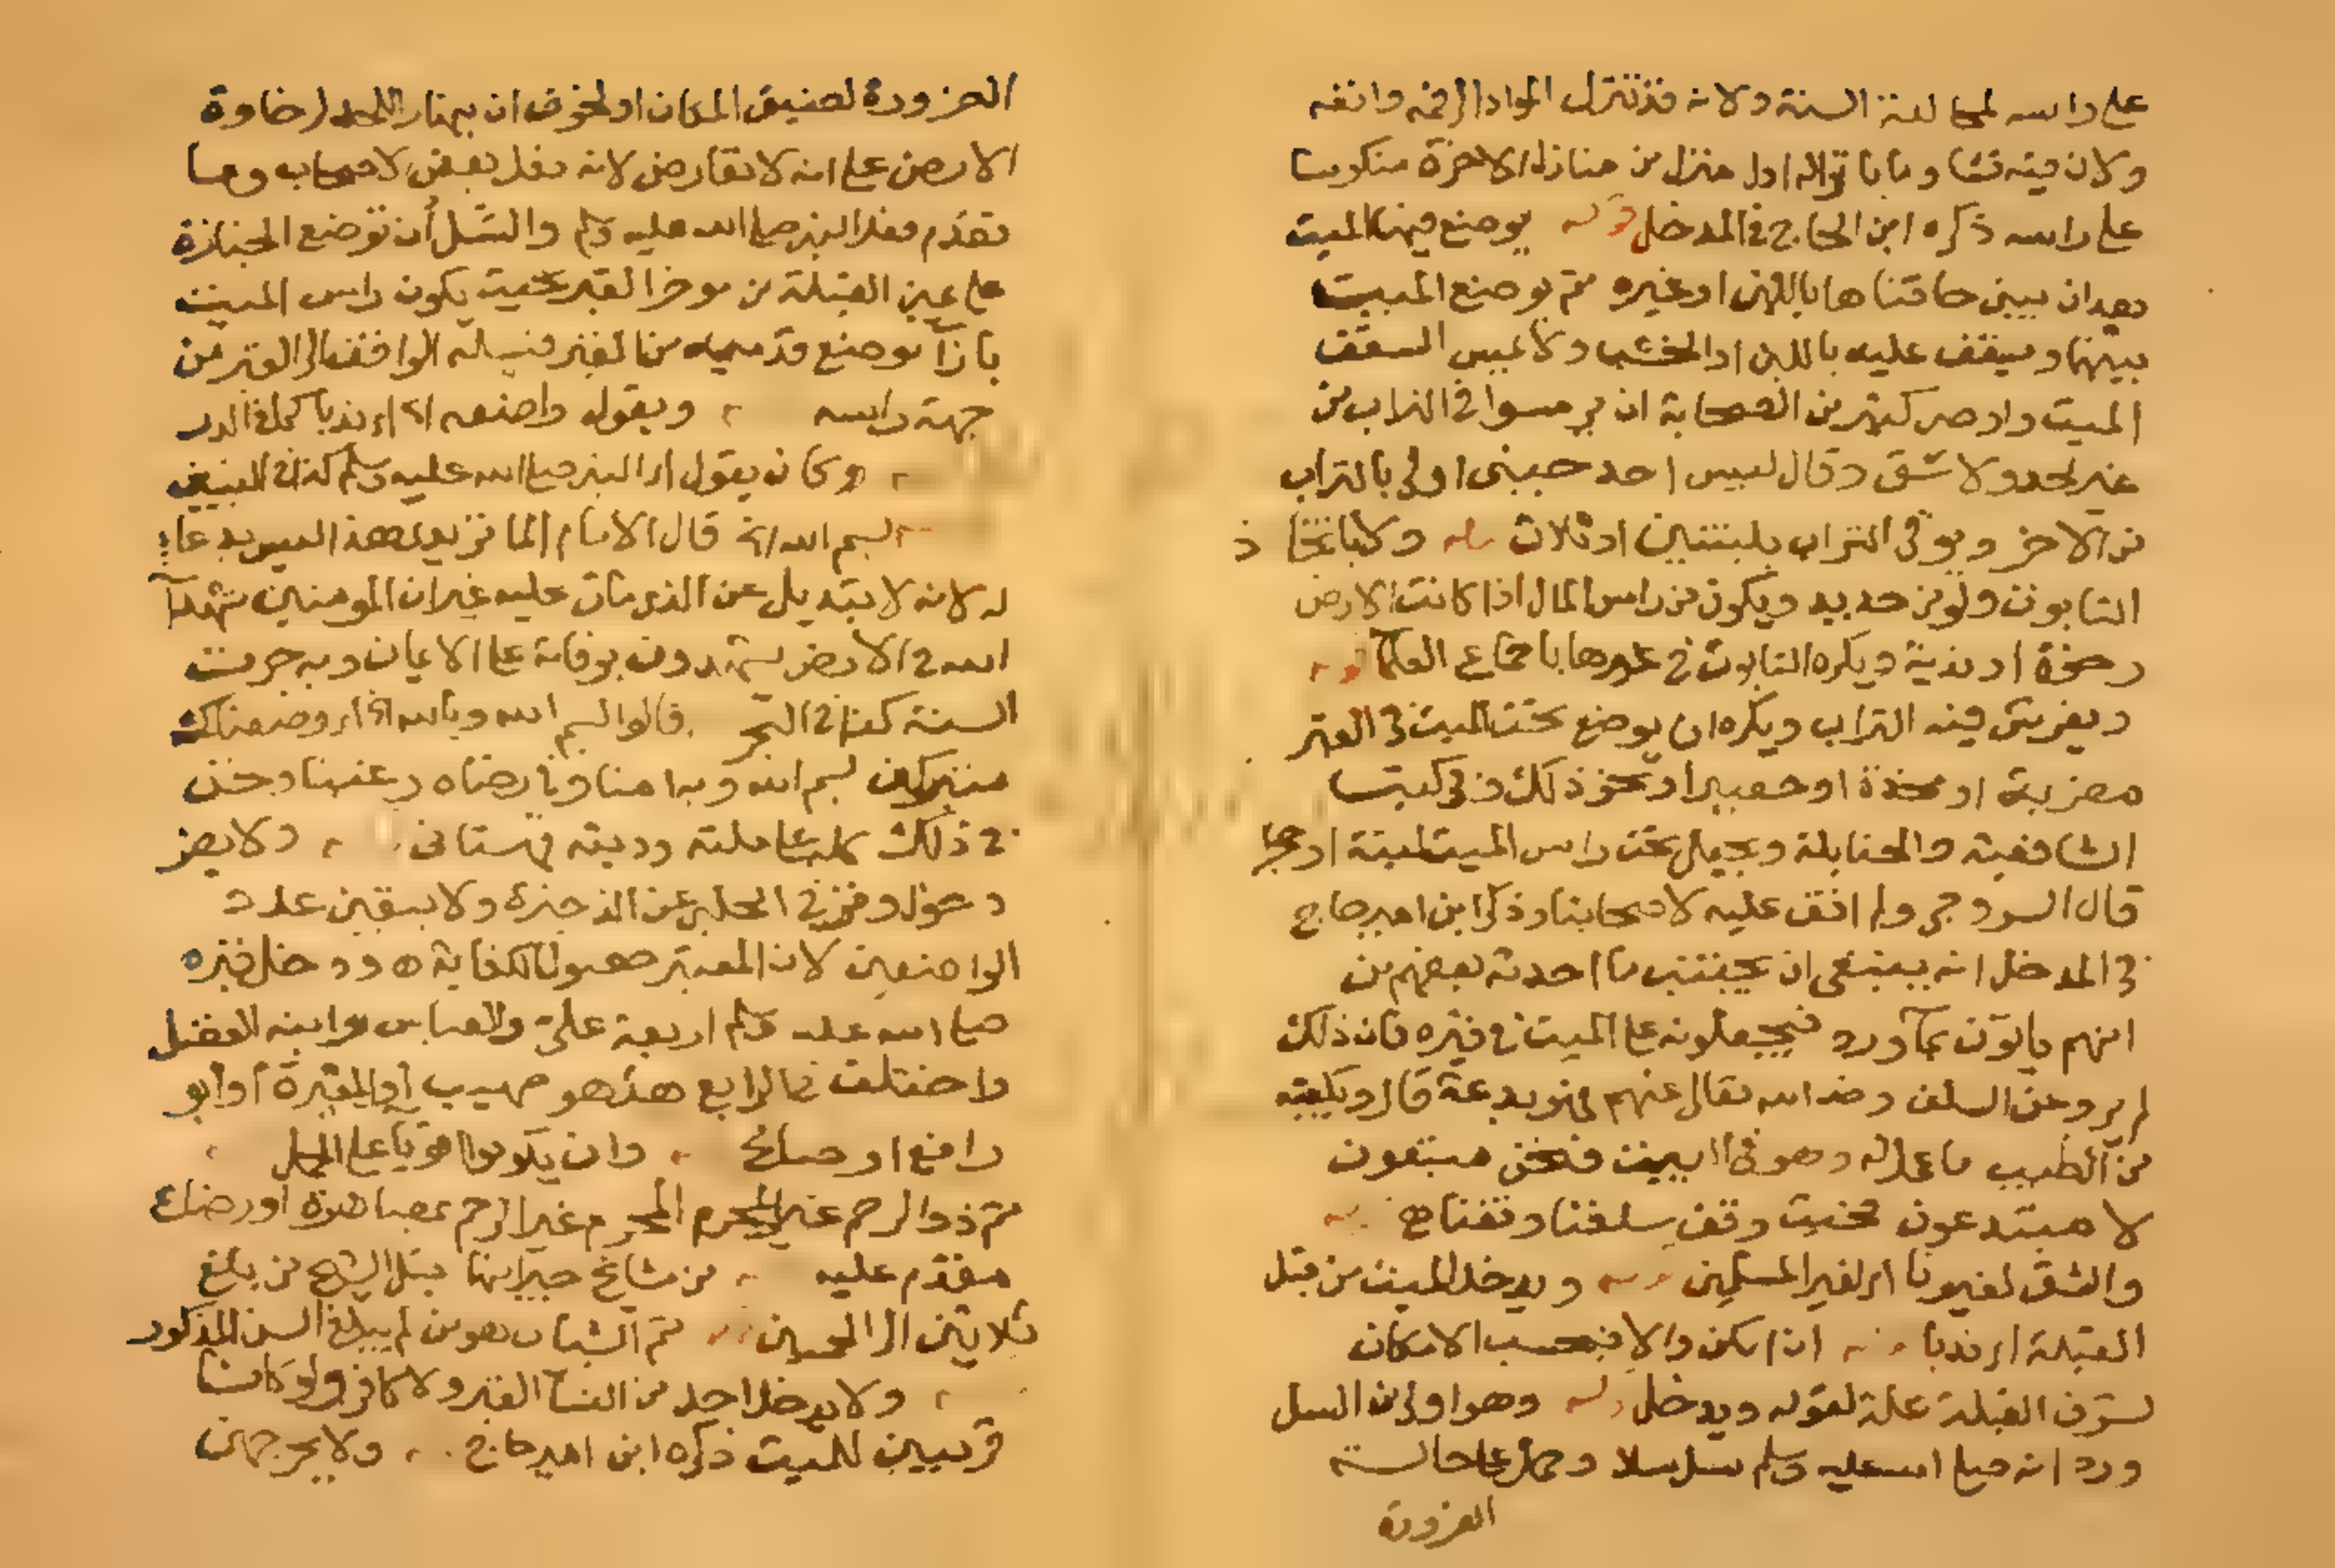 على راسه لمخالفة السنة ولانه قد تنزل المواد الى فمه وانفه
ولان فيه تشاوما بانزاله اول منزل من منازل الاخرة منكوسا
على راسه ذكره ابن الحاج في المدخل قوله يوضع فيها الميت
بعد ان يبنى حافتاها باللبن او غيره ثم يوضع الميت
بينهما ويسقف عليه باللبن او الخشب ولا يمس السقف
الميت واوصى كثير من الصحابة ان يرمسوا في التراب من
غير لحد ولا شق وقال ليس احد جنبى اولى بالتراب
من الاخر ويوقى التراب بلبنتين او ثلاث ولا باتخاذ
التابوت ولو من حديد ويكون من راس المال اذا كانت الارض
رخوة او ندية ويكره التابوت في غيرها باجماع العلما
ويفرش فيه التراب ويكره ان يوضع تحت الميت في القبر
مضربة او مخدة او حصير او نحو ذلك وفي كتب
الشافعية والحنابلة ويجعل تحت راس الميت لبنة او حجر
قال السروجي ولم اقف عليه لاصحابنا وذكر ابن اميرحاج
في المدخل انه ينبغى ان يجتنب ما احدثه بعضهم من
انهم ياتون بماورد فيجعلونه على الميت في قبره فان ذلك
لم يرو عن السلف رضى الله تعالى عنهم فهو بدعة قال ويكفيه
من الطيب ما عمل له وهو في البيت فنحن متبعون
لا مبتدعون فحيث وقف سلفنا وقفنا
والشق لغيرنا اى لغير المسلمين ويدخل الميت من قبل
القبلة اى ندبا ان امكن والا فبحسب الامكان
لشرف القبلة علة لقوله ويدخل وهو اولى من السل
ورد انه صلى الله عليه وسلم سل سلا وحمل على حالة
الضرورة
الضرورة لضيق المكان او لخوف ان ينهار اللحد لرخاوة
الارض على انه لا تعارض لانه فعل بعض الاصحاب وما
تقدم فعل النبي صلى الله عليه وسلم والسل أن توضع الجنازة
على يمين القبلة من موخر القبر بحيث يكون راس الميت
بازآ موضع قدميه من القبر فيسله الواقف الى القبر من
جهة راسه ويقول واضعه اى ندبا كما في الدر
وكان يقول اى النبي صلى الله عليه وسلم كذا في التبيين
بسم الله الخ قال الامام الماتريدى هذا ليس بدعاء
له لانه لا يتبدل عن الذى مات عليه غير ان المومنين شهدآ
الله في الارض يشهدون بوفاته على الايمان وبه جرت
السنة كذا في البحر قالوا بسم الله وبالله اى وضعناك
متبركين بسم الله وبه امنا
في ذلك كله على ملته ودينه قهستانى ولا يضر
دخول وتر في القبر عن الذخيرة ولا يتعين عدد
الواضعين لان المعتبر حصول الكفاية ودخل قبره
صلى الله عليه وسلم اربعة على والعباس وابنه الفضل
واختلف في الرابع هل هو صهيب أو المغيرة أو أبو
رافع او صالح وان يكونوا اقويا
ثم ذو الرحم غير المحرم المحرم غير الرحم بمصاهرة او رضاع
مقدم عليه من مشايخ جيرانها قيل الشيخ من بلغ
ثلاثين الى الخمسين ثم الشباب هو من لم يبلغ السن المذكور
ولا يدخل احد من النسآ القبر ولا كافر ولو كانا
قريبين للميت ذكره ابن اميرحاج ولا يخرجهن